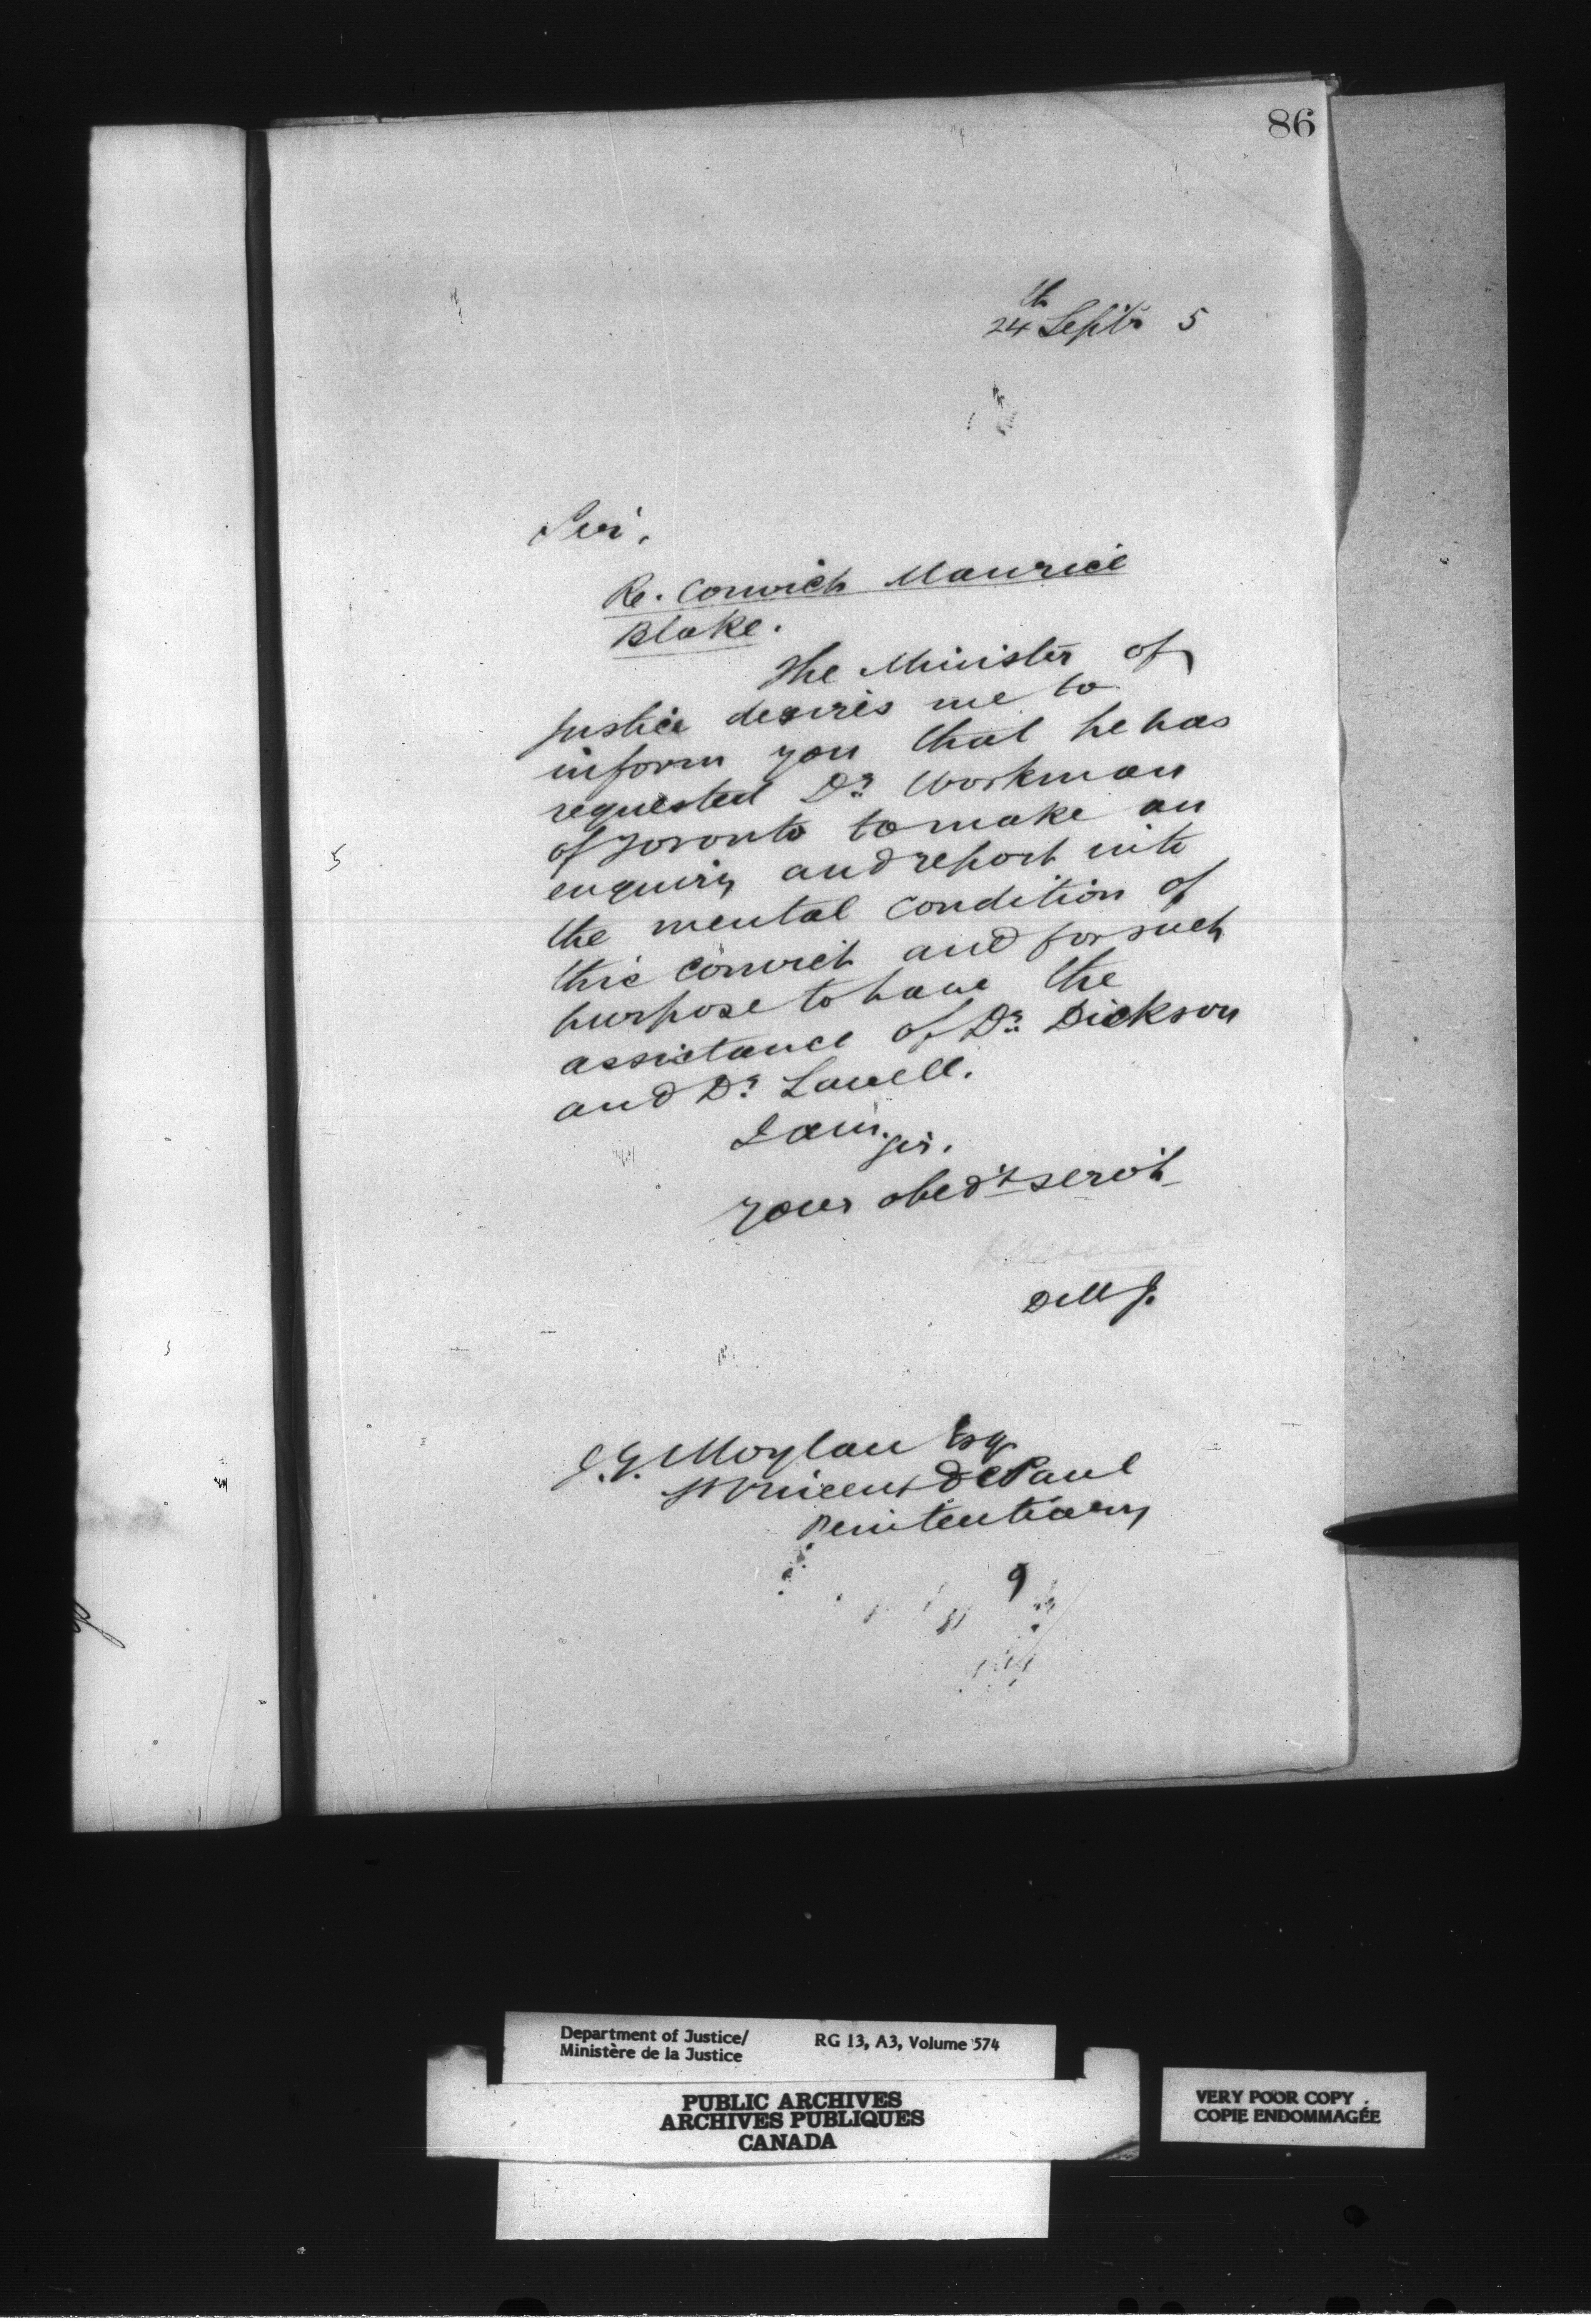 86
24th Septr 5
Sir,
Re. Convict Maurice
Blake.
The Minister of
Justice desires me to
inform you that he has
requested Dr. Workman
of Toronto to make an
enquiry and report into
the mental condition of
this convict and for such
purpose to have the
assistance of Dr. Dickson
and Dr. Lavell.
I am,
Sir,
Your obed't serv't
D M J.
J. G. Moylan Esq
St Vincent de Paul
Penitentiary
9
5
Department of Justice/ RG 13, A3, Volume 574
Ministère de la Justice
PUBLIC ARCHIVES
ARCHIVES PUBLIQUES
CANADA
VERY POOR COPY
COPIE ENDOMMAGÉE